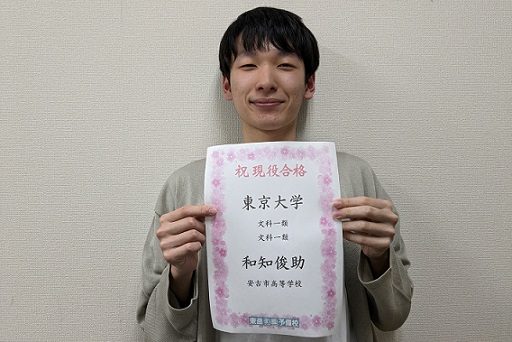 祝 現役合格
東京大学
文科一類
文科一類
和知俊助
安古市高等学校